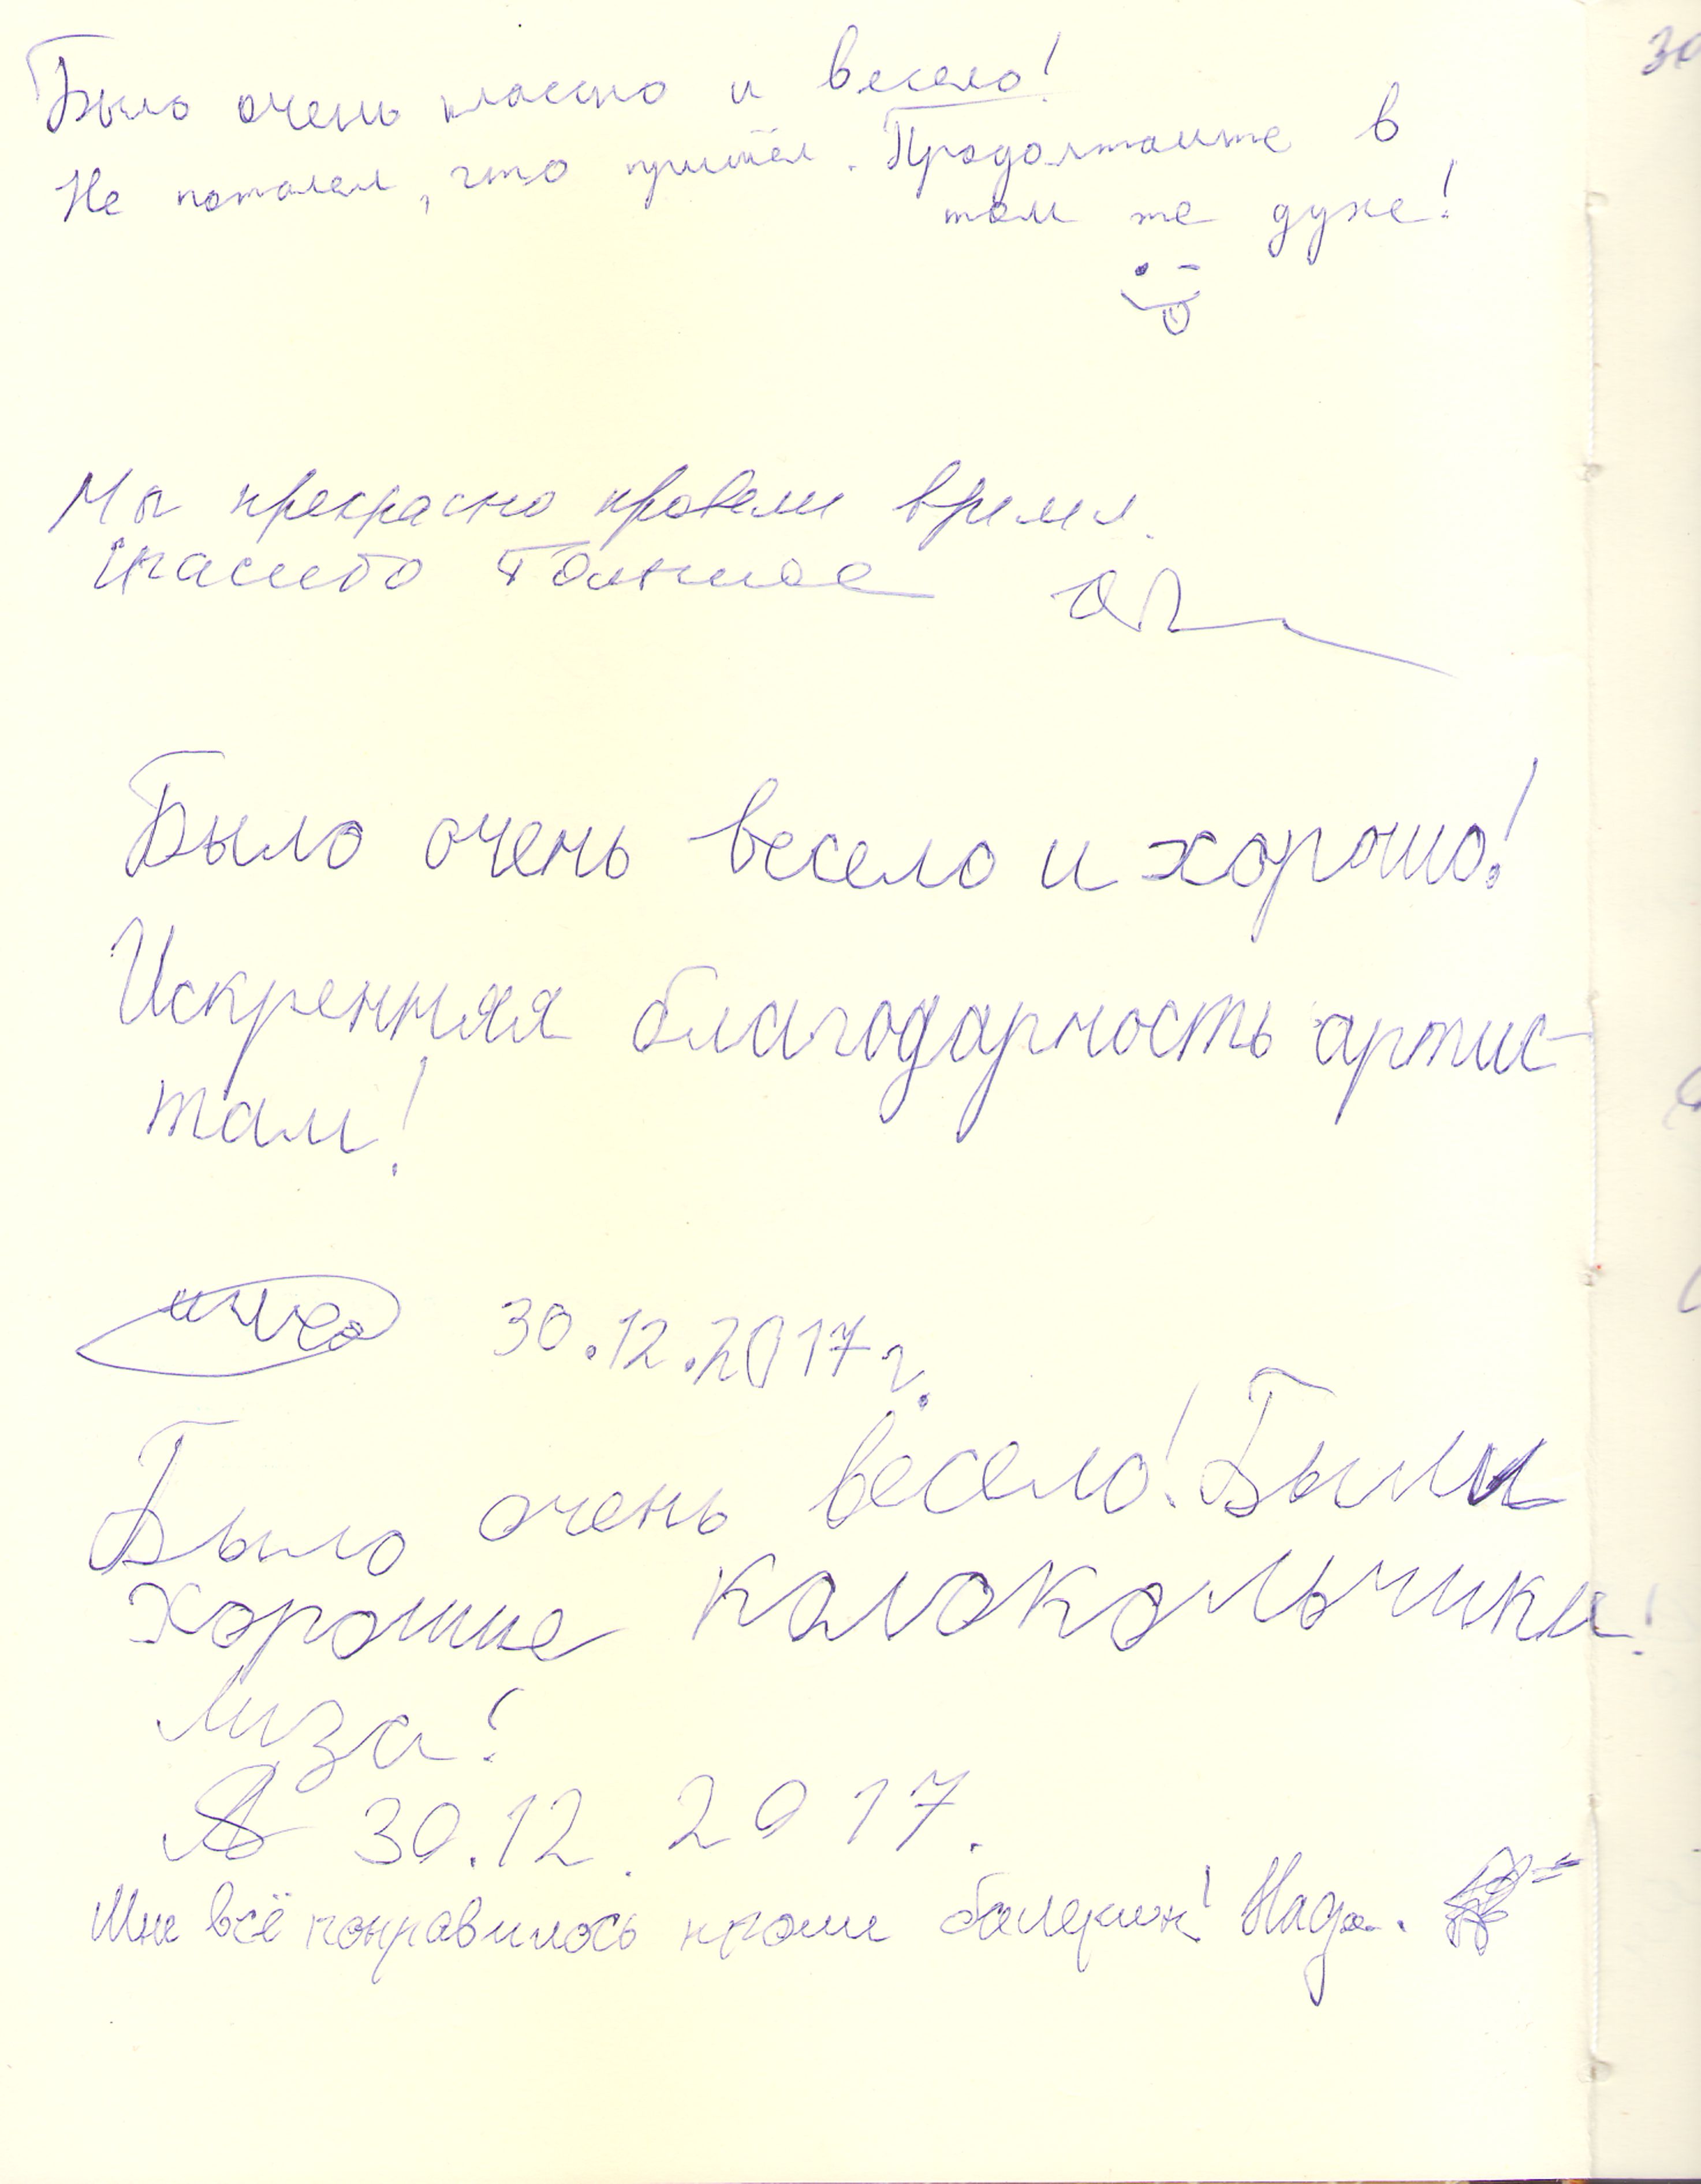 Было очень классно и весело!
Не пожалел, что пришёл. Продолжайте в
том же духе!
Мы прекрасно провели время.
Спасибо большое
Было очень весело и хорошо!
Искренняя благодарность артис-
там!
30.12.2017г.
Было очень весело! Были
хорошие колокольчики!
Лиза!
30.12.2017.
Мне всё понравилось кроме балерин! Надя.
30